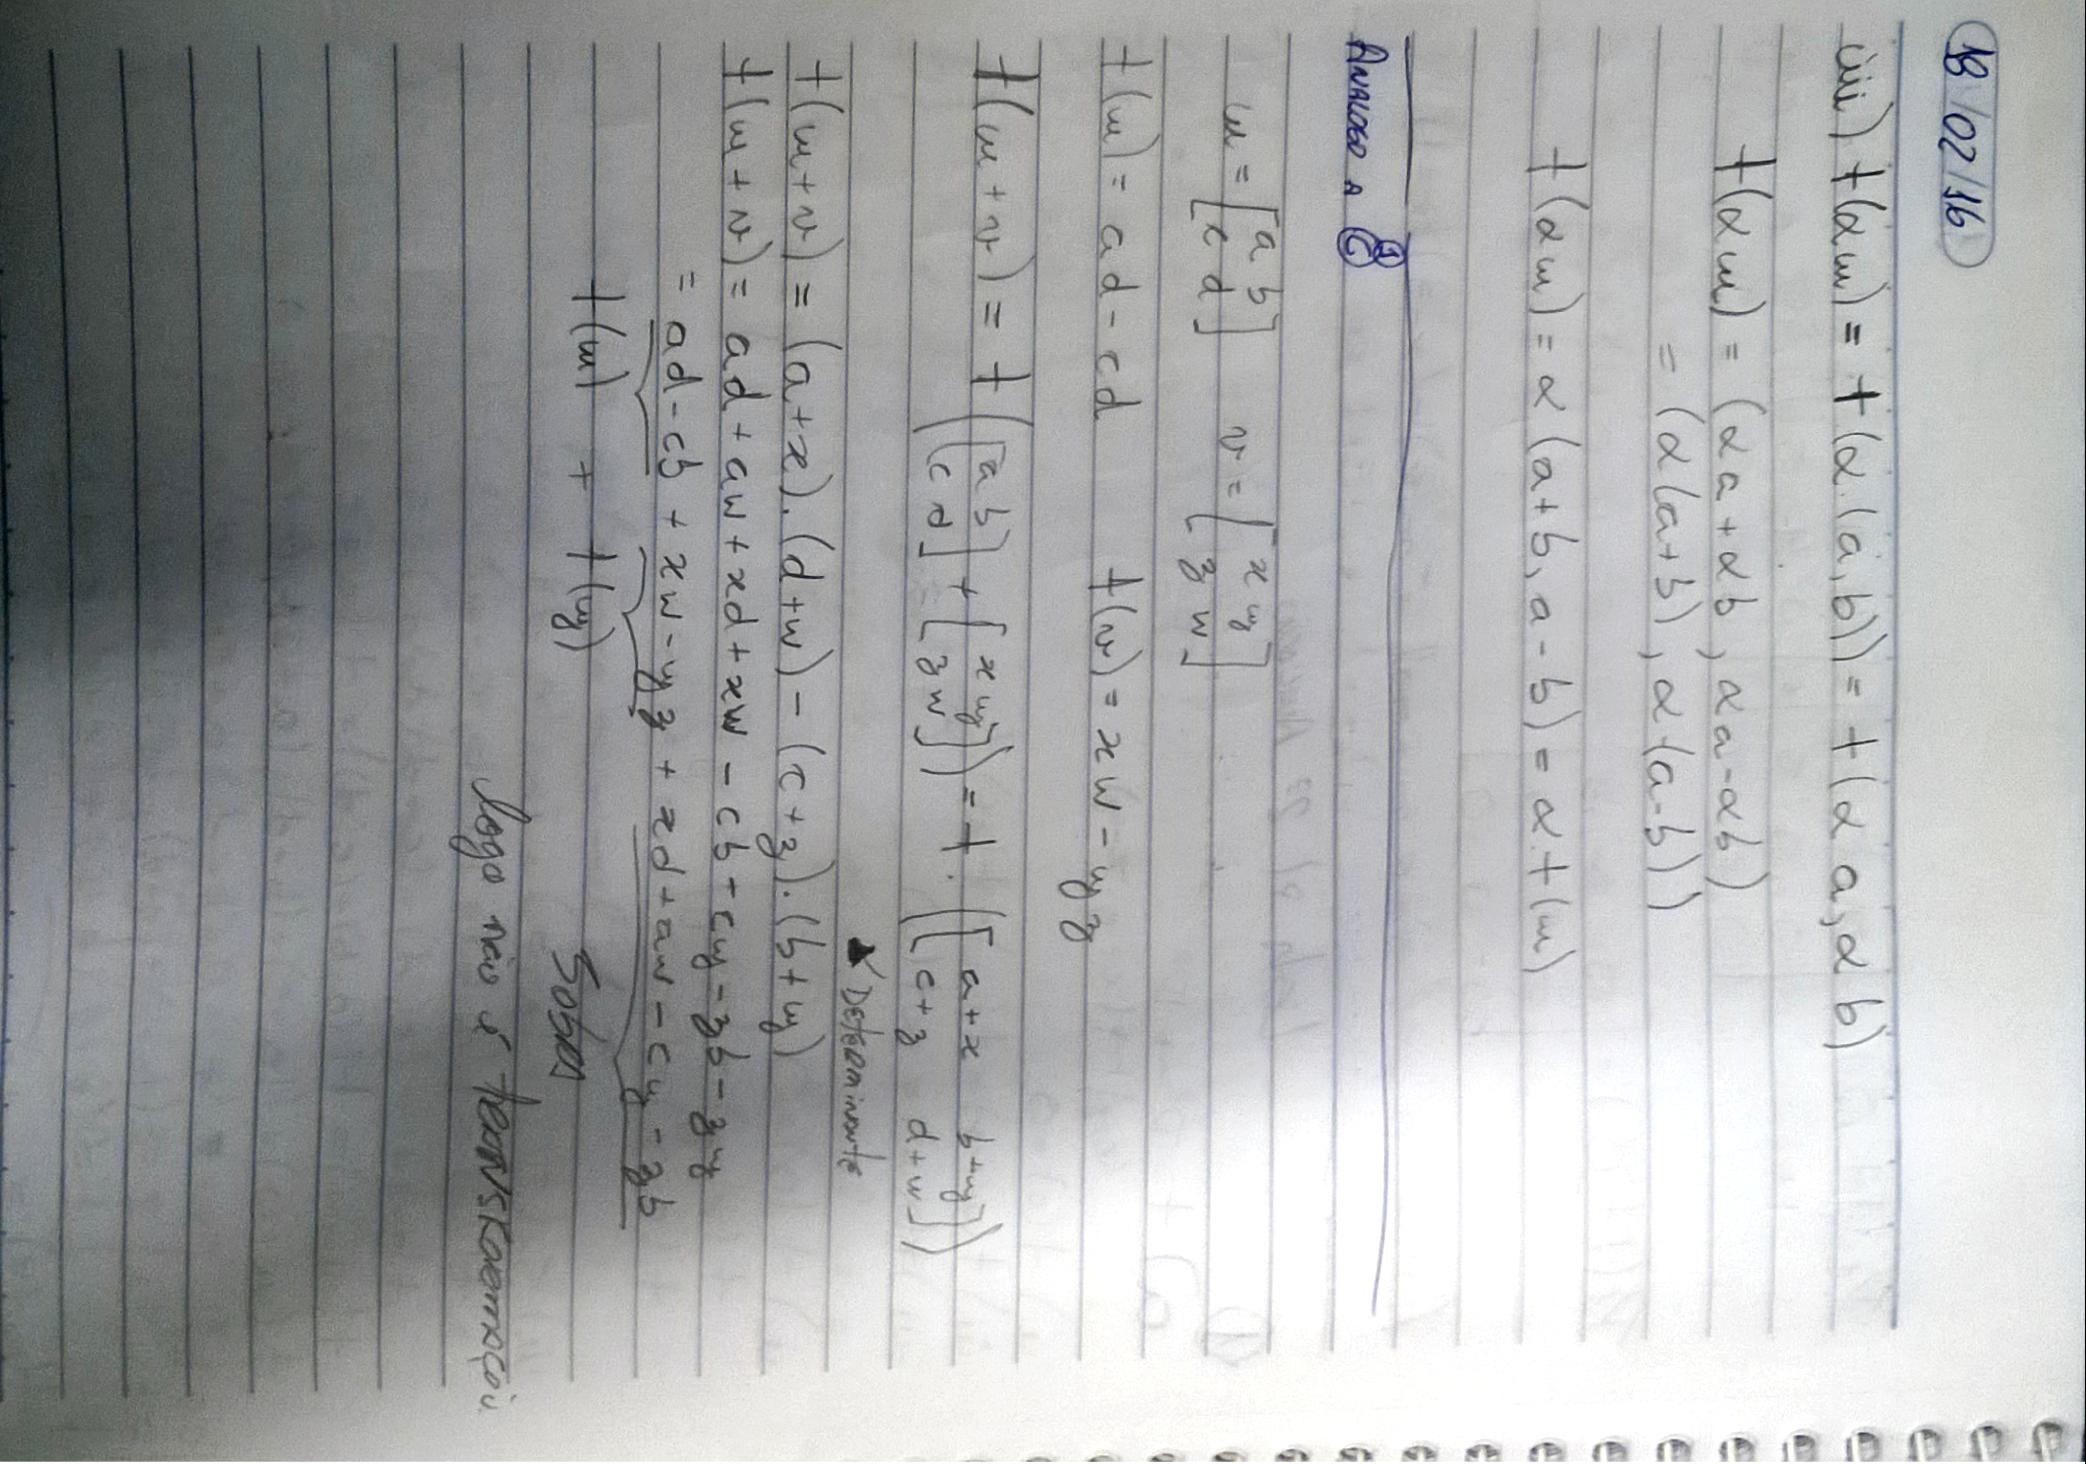 18/02/16
iii) t(αu) = t(α.(a,b)) = t(α a, α b)
t(αu) = (αa + αb, αa - αb)
= (α(a+b), α(a-b))
t(αu) = α(a+b, a-b) = α.t(u)
ANALOGO A
u = [a b; c d] v = [x y; z w]
t(u) = ad - cd t(v) = xw - yz
t(u+v) = t([a b; c d] + [x y; z w]) = t.([a+x b+y; c+z d+w])
DETERMINANTE
t(u+v) = (a+x).(d+w) - (c+z).(b+y)
t(u+v) = ad + aw + xd + xw - cb - cy - zb - zy
= ad - cb + xw - yz + xd + aw - cy - zb
t(u) + t(y) SOBRA
logo não é